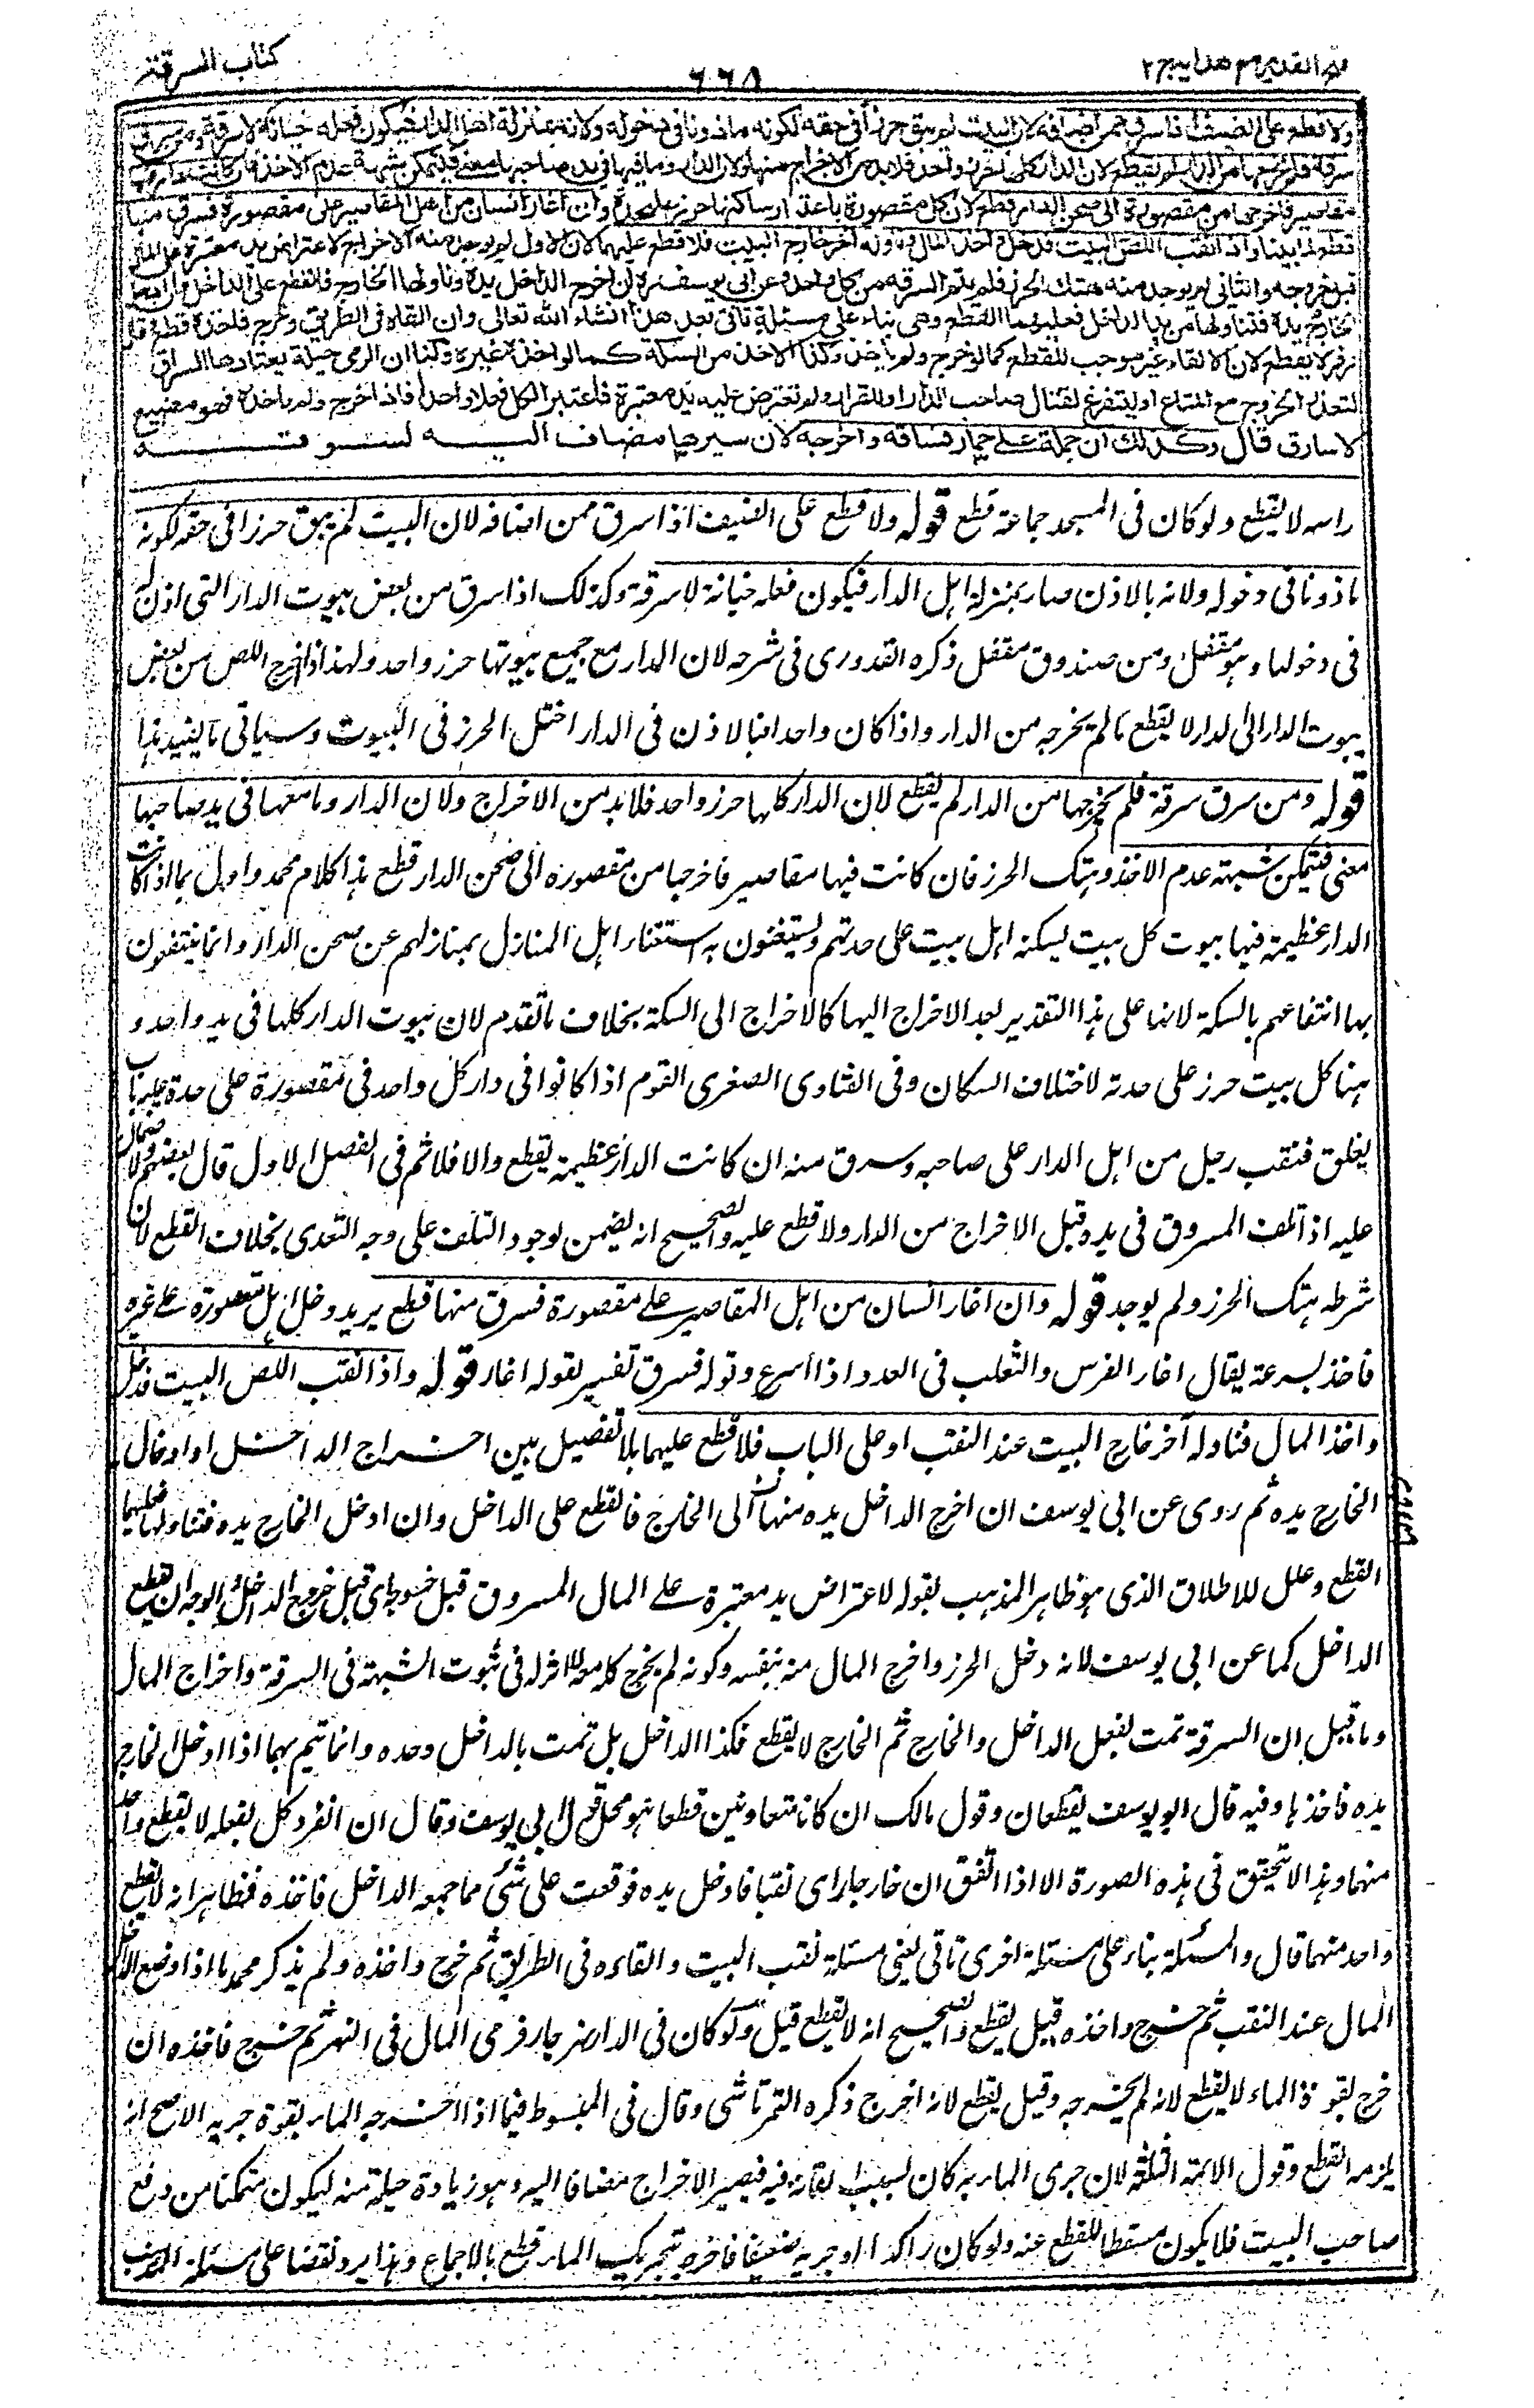 فتح القدير مع هدايه ج ٢
٦٦٨
كتاب السرقة
ولا قطع على الضيف اذا سرق ممن اضافه لان البيت لم يبق حرزا في حقه لكونه ماذونا في دخوله ولانه بمنزلة اهل الدار فيكون فعله خيانة لا سرقة ومن سرق
سرقة فلم يخرجها من الدار لم يقطع لان الدار كلها حرز واحد فلا بد من الاخراج منها ولان الدار وما فيها في يد صاحبها معنى فتمكن شبهة عدم الاخذ فان كانت دار فيها
مقاصير فاخرجها من مقصورة الى صحن الدار قطع لان كل مقصورة باعتبار ساكنها حرز على حدة وان اغار انسان من اهل المقاصير على مقصورة فسرق منها
قطع لما بينا واذا نقب اللص البيت فدخل واخذ المال وناوله آخر خارج البيت فلا قطع عليهما لان الاول لم يوجد منه الاخراج لاعتراض يد معتبرة على المال
قبل خروجه والثاني لم يوجد منه هتك الحرز فلم يتم السرقة من كل واحد وعن ابي يوسف ره ان اخرج الداخل يده وناولها الخارج فالقطع على الداخل وان ادخل
الخارج يده فتناولها من يد الداخل فعليهما القطع وهي بناء على مسئلة تاتي بعد هذا انشاء الله تعالى وان القاه في الطريق وخرج فاخذه قطع وقال
زفر لا يقطع لان الالقاء غير موجب للقطع كما لو خرج ولم ياخذ وكذا الاخذ من السكة كما لو اخذه غيره ولنا ان الرمي حيلة يعتادها السراق
لتعذر الخروج مع المتاع او ليتفرغ لقتال صاحب الدار او للفرار ولم تعترض عليه يد معتبرة فاعتبر الكل فعلا واحدا فاذا خرج ولم ياخذه فهو مضيع
لا سارق قال وكذلك ان حمله على حمار فساقه واخرجه لان سيرها مضاف اليه لسوقه
راسه لا يقطع ولو كان في المسجد جماعة قطع قوله ولا قطع على الضيف اذا سرق ممن اضافه لان البيت لم يبق حرزا في حقه لكونه
ماذونا في دخوله ولانه بالاذن صار بمنزلة اهل الدار فيكون فعله خيانة لا سرقة وكذلك اذا سرق من بعض بيوت الدار التي اذن له
في دخولها وهو مقفل او من صندوق مقفل ذكره القدوري في شرحه لان الدار مع جميع بيوتها حرز واحد ولهذا اذا اخرج اللص من بعض
بيوت الدار الى الدار لا يقطع ما لم يخرجه من الدار واذا كان واحدا فبالاذن في الدار اختل الحرز في البيوت وسياتي ما يفيد هذا
قوله ومن سرق سرقة فلم يخرجها من الدار لم يقطع لان الدار كلها حرز واحد فلا بد من الاخراج ولان الدار وما معها في يد صاحبها
معنى فتمكن شبهة عدم الاخذ وهتك الحرز فان كانت فيها مقاصير فاخرجها من مقصورة الى صحن الدار قطع هذا كلام محمد واول بما اذا كانت
الدار عظيمة فيها بيوت كل بيت يسكنه اهل بيت على حدتهم ويستغنون به استغناء اهل المنازل بمنازلهم عن صحن الدار وانما ينتفعون
بها انتفاعهم بالسكة لانها على هذا التقدير يعد الاخراج اليها كالاخراج الى السكة بخلاف ما تقدم لان بيوت الدار كلها في يد واحد و
هنا كل بيت حرز على حدته لاختلاف السكان وفي الفتاوى الصغرى القوم اذا كانوا في دار كل واحد في مقصورة على حدة عليه باب
يغلق فنقب رجل من اهل الدار على صاحبه وسرق منه ان كانت الدار عظيمة يقطع والا فلا ثم في الفصل الاول قال بعضهم لا ضمان
عليه اذا تلف المسروق في يده قبل الاخراج من الدار ولا قطع عليه والصحيح انه يضمن لوجود التلف على وجه التعدى بخلاف القطع لان
شرطه هتك الحرز ولم يوجد قوله وان اغار انسان من اهل المقاصير على مقصورة فسرق منها قطع يريد دخل اهل مقصورة على غيره
فاخذ بسرعة يقال اغار الفرس والثعلب في العدو اذا اسرع وقوله فسرق تفسير لقوله اغار قوله واذا نقب اللص البيت فدخل
واخذ المال فناوله آخر خارج البيت عند النقب او على الباب فلا قطع عليهما بلا تفصيل بين اخراج الداخل او ادخال
الخارج يده ثم روى عن ابي يوسف ان اخرج الداخل يده منها الى الخارج فالقطع على الداخل وان ادخل الخارج يده فتناولها فعليهما
القطع وعلل للاطلاق الذي هو ظاهر المذهب بقوله لاعتراض يد معتبرة على المال المسروق قبل خروجه اي قبل خروج الداخل والوجه ان يقطع
الداخل كما عن ابي يوسف لانه دخل الحرز واخرج المال منه بنفسه وكونه لم يخرج كله معه لا اثر له في ثبوت الشبهة في السرقة واخراج المال
وما قيل ان السرقة تمت بفعل الداخل والخارج ثم الخارج لا يقطع فكذا الداخل بل تمت بالداخل وحده وانما تتم بهما اذا ادخل الخارج
يده فاخذها وفيه قال ابو يوسف يقطعان وقول مالك ان كانا متعاونين قطعا هو محمل قول ابي يوسف وقال ان انفرد كل بفعله لا يقطع واحد
منهما وهذا لا يتحقق في هذه الصورة الا اذا اتفق ان خارجا راى نقبا فادخل يده فوقعت على شئ مما جمعه الداخل فاخذه فظاهر انه لا يقطع
واحد منهما قال والمسئلة بناء على مسئلة اخرى تاتي يعني مسئلة نقب البيت والقاءه في الطريق ثم خرج واخذه ولم يذكر محمد ما اذا وضع الداخل
المال عند النقب ثم خرج واخذه قيل يقطع والصحيح انه لا يقطع قيل ولو كان في الدار نهر جار فرمى المال في النهر ثم خرج فاخذه ان
خرج بقوة الماء لا يقطع لانه لم يخرجه وقيل يقطع لانه اخرج ذكره التمرتاشي وقال في المبسوط فيما اذا اخرجه الماء بقوة جريه الاصح انه
يلزمه القطع وقول الائمة الثلثة لان جرى الماء به كان بسبب القائه فيه فيصير الاخراج مضافا اليه وهو زيادة حيلة منه ليكون متمكنا من دفع
صاحب البيت فلا يكون مسقطا للقطع عنه ولو كان راكدا او جريه ضعيفا فاخرجه بتحريك الماء قطع بالاجماع وهذا يرد نقضا على مسئلة